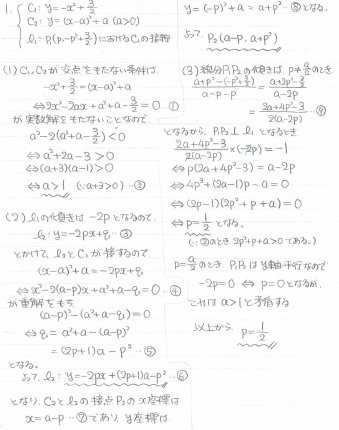 1. { C₁: y=-x²+3/2
C₂: y=(x-a)²+a (a>0)
l₁: P₁(p, -p²+3/2)におけるC₁の接線
(1) C₁, C₂が交点をもたない条件は
-x²+3/2=(x-a)²+a
⇔2x²-2ax+a²+a-3/2=0 …①
が実数解をもたないことなので、
a²-2(a²+a-3/2)<0
⇔a²+2a-3>0
⇔(a+3)(a-1)>0
⇔a>1 (∵a+3>0) …②
(2) l₁の傾きは -2pとなるので、
l₂: y=-2px+q …③
とかけて、l₂とC₂が接するので
(x-a)²+a=-2px+q
⇔x²-2(a-p)x+a²+a-q=0 …④
が重解をもち
(a-p)²-(a²+a-q)=0
⇔q=a²+a-(a-p)²
=(2p+1)a-p² …⑤
となる。
よって、l₂: y=-2px+(2p+1)a-p² …⑥
となり、C₂とl₂の接点P₂のx座標は
x=a-p …⑦であり、y座標は
y=(-p)²+a=a+p² …⑧となる。
よって、P₂(a-p, a+p²)
(3) 線分P₁P₂の傾きは、p≠a/2のとき
(a+p²-(-p²+3/2))/(a-p-p)=(a+2p²-3/2)/(a-2p)
=(2a+4p²-3)/(2(a-2p)) …⑨
となるから、P₁P₂⊥l₁となるとき
(2a+4p²-3)/(2(a-2p))×(-2p)=-1
⇔p(2a+4p²-3)=a-2p
⇔4p³+(2a-1)p-a=0
⇔(2p-1)(2p²+p+a)=0
⇔p=1/2となる。
(∵②のとき、2p²+p+a>0である。)
p=a/2のとき、P₁P₂はy軸平行なので
-2p=0 ⇔ p=0となるが、
これはa>1と矛盾する
以上から、p=1/2